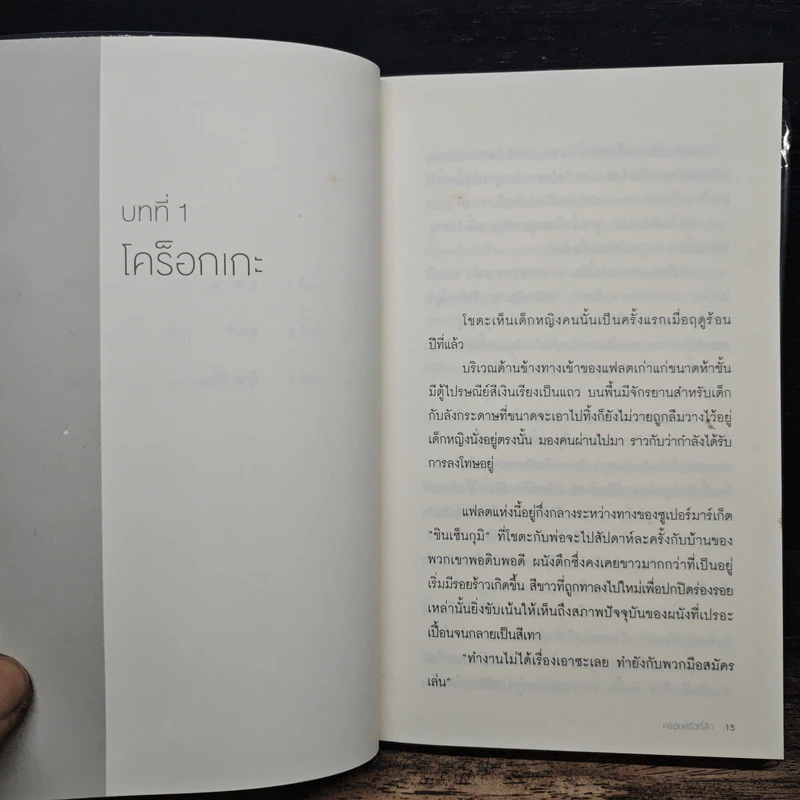 บทที่ 1
โคร็อกเกะ
โชตะเห็นเด็กหญิงคนนั้นเป็นครั้งแรกเมื่อฤดูร้อน
ปีที่แล้ว
บริเวณด้านข้างทางเข้าของแฟลตเก่าแก่ขนาดห้าชั้น
มีตู้ไปรษณีย์สีเงินเรียงเป็นแถว บนพื้นมีจักรยานสำหรับเด็ก
กับลังกระดาษที่ขนาดจะเอาไปทิ้งก็ยังไม่วายถูกลืมวางไว้อยู่
เด็กหญิงนั่งอยู่ตรงนั้น มองคนผ่านไปมา ราวกับว่ากำลังได้รับ
การลงโทษอยู่
แฟลตแห่งนี้อยู่กึ่งกลางระหว่างทางของซูเปอร์มาร์เก็ต
"ชินเซ็นกุมิ" ที่โชตะกับพ่อจะไปสัปดาห์ละครั้งกับบ้านของ
พวกเขาพอดิบพอดี ผนังตึกซึ่งคงเคยขาวมากกว่าที่เป็นอยู่
เริ่มมีรอยร้าวเกิดขึ้น สีขาวที่ถูกทาลงไปใหม่เพื่อปกปิดร่องรอย
เหล่านั้นยิ่งขับเน้นให้เห็นถึงสภาพปัจจุบันของผนังที่เปรอะ
เปื้อนจนกลายเป็นสีเทา
"ทำงานไม่ได้เรื่องเอาซะเลย ทำยังกับพวกมือสมัคร
เล่น"
ครอบครัวที่ลัก 15